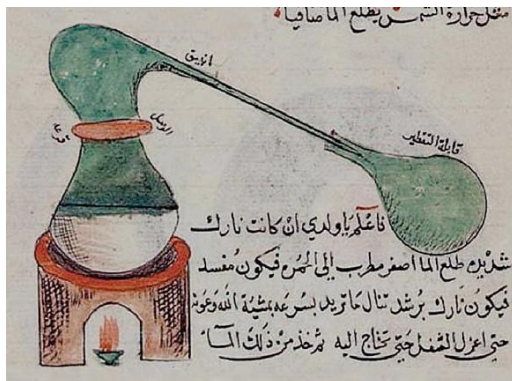 مثل حرارة الشمس يطلع الما صافيا
انبيق
الوصل
قرعة
قابلة التقطير
فاعلم يا ولدي ان كانت نارك
شديده طلع الما اصفر مطرب إلى الحمره فيكون مفسد
فيكون نارك برشد تنال ما تريد بسرعه بمشية الله وعونه
حتى اعزل الثفل حتى تحتاج اليه ثم خذ من ذلك المآء